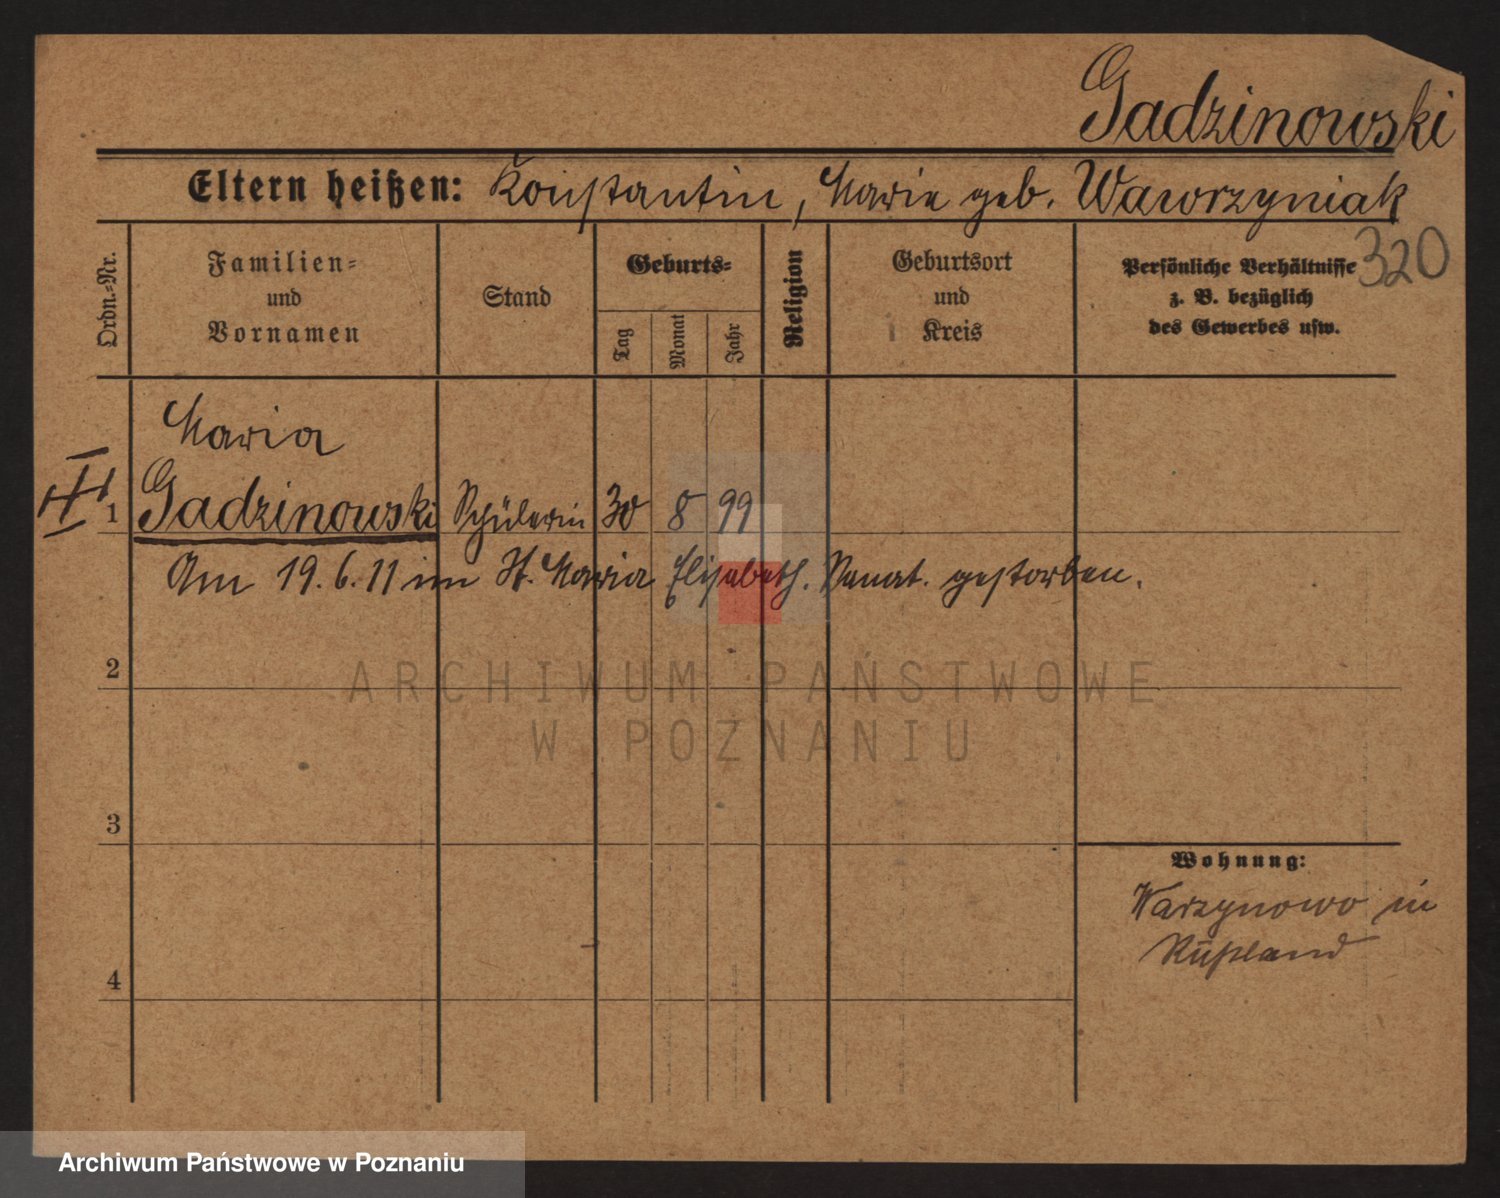 Gadzinowski
Eltern heißen: Konstantin, Marie geb. Wawrzyniak
320
Ordn.-Nr.
Familien- und Vornamen
Stand
Geburts-
Tag
Monat
Jahr
Religion
Geburtsort und Kreis
Persönliche Verhältnisse
z. B. bezüglich
des Gewerbes usw.
Maria
1 Gadzinowski Schülerin 30 8 99
Am 19.6.11 im St. Maria Elisabeth. Sanat. gestorben.
2
ARCHIWUM PAŃSTWOWE
W POZNANIU
3
Wohnung:
Warzynowo in
Rußland
4
Archiwum Państwowe w Poznaniu